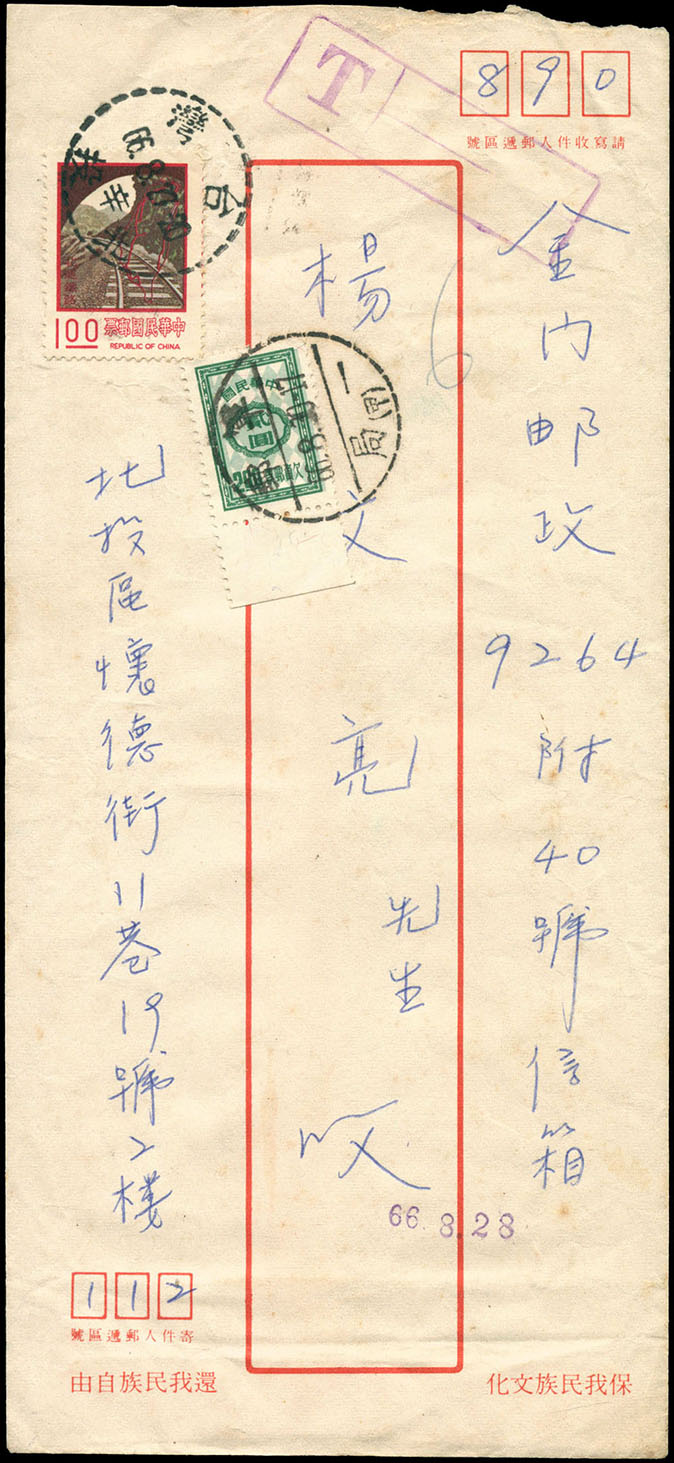 T
890
請寫收件人郵遞區號
金门邮政9264附40號信箱
楊文亮先生 收
66.8.28
北投區懷德街11巷19號2樓
112
寄件人郵遞區號
保我民族文化
還我民族自由
台灣
北投
中華民國郵票
1.00
REPUBLIC OF CHINA
中華民國
貳圓
欠資
200
一局(甲)
6